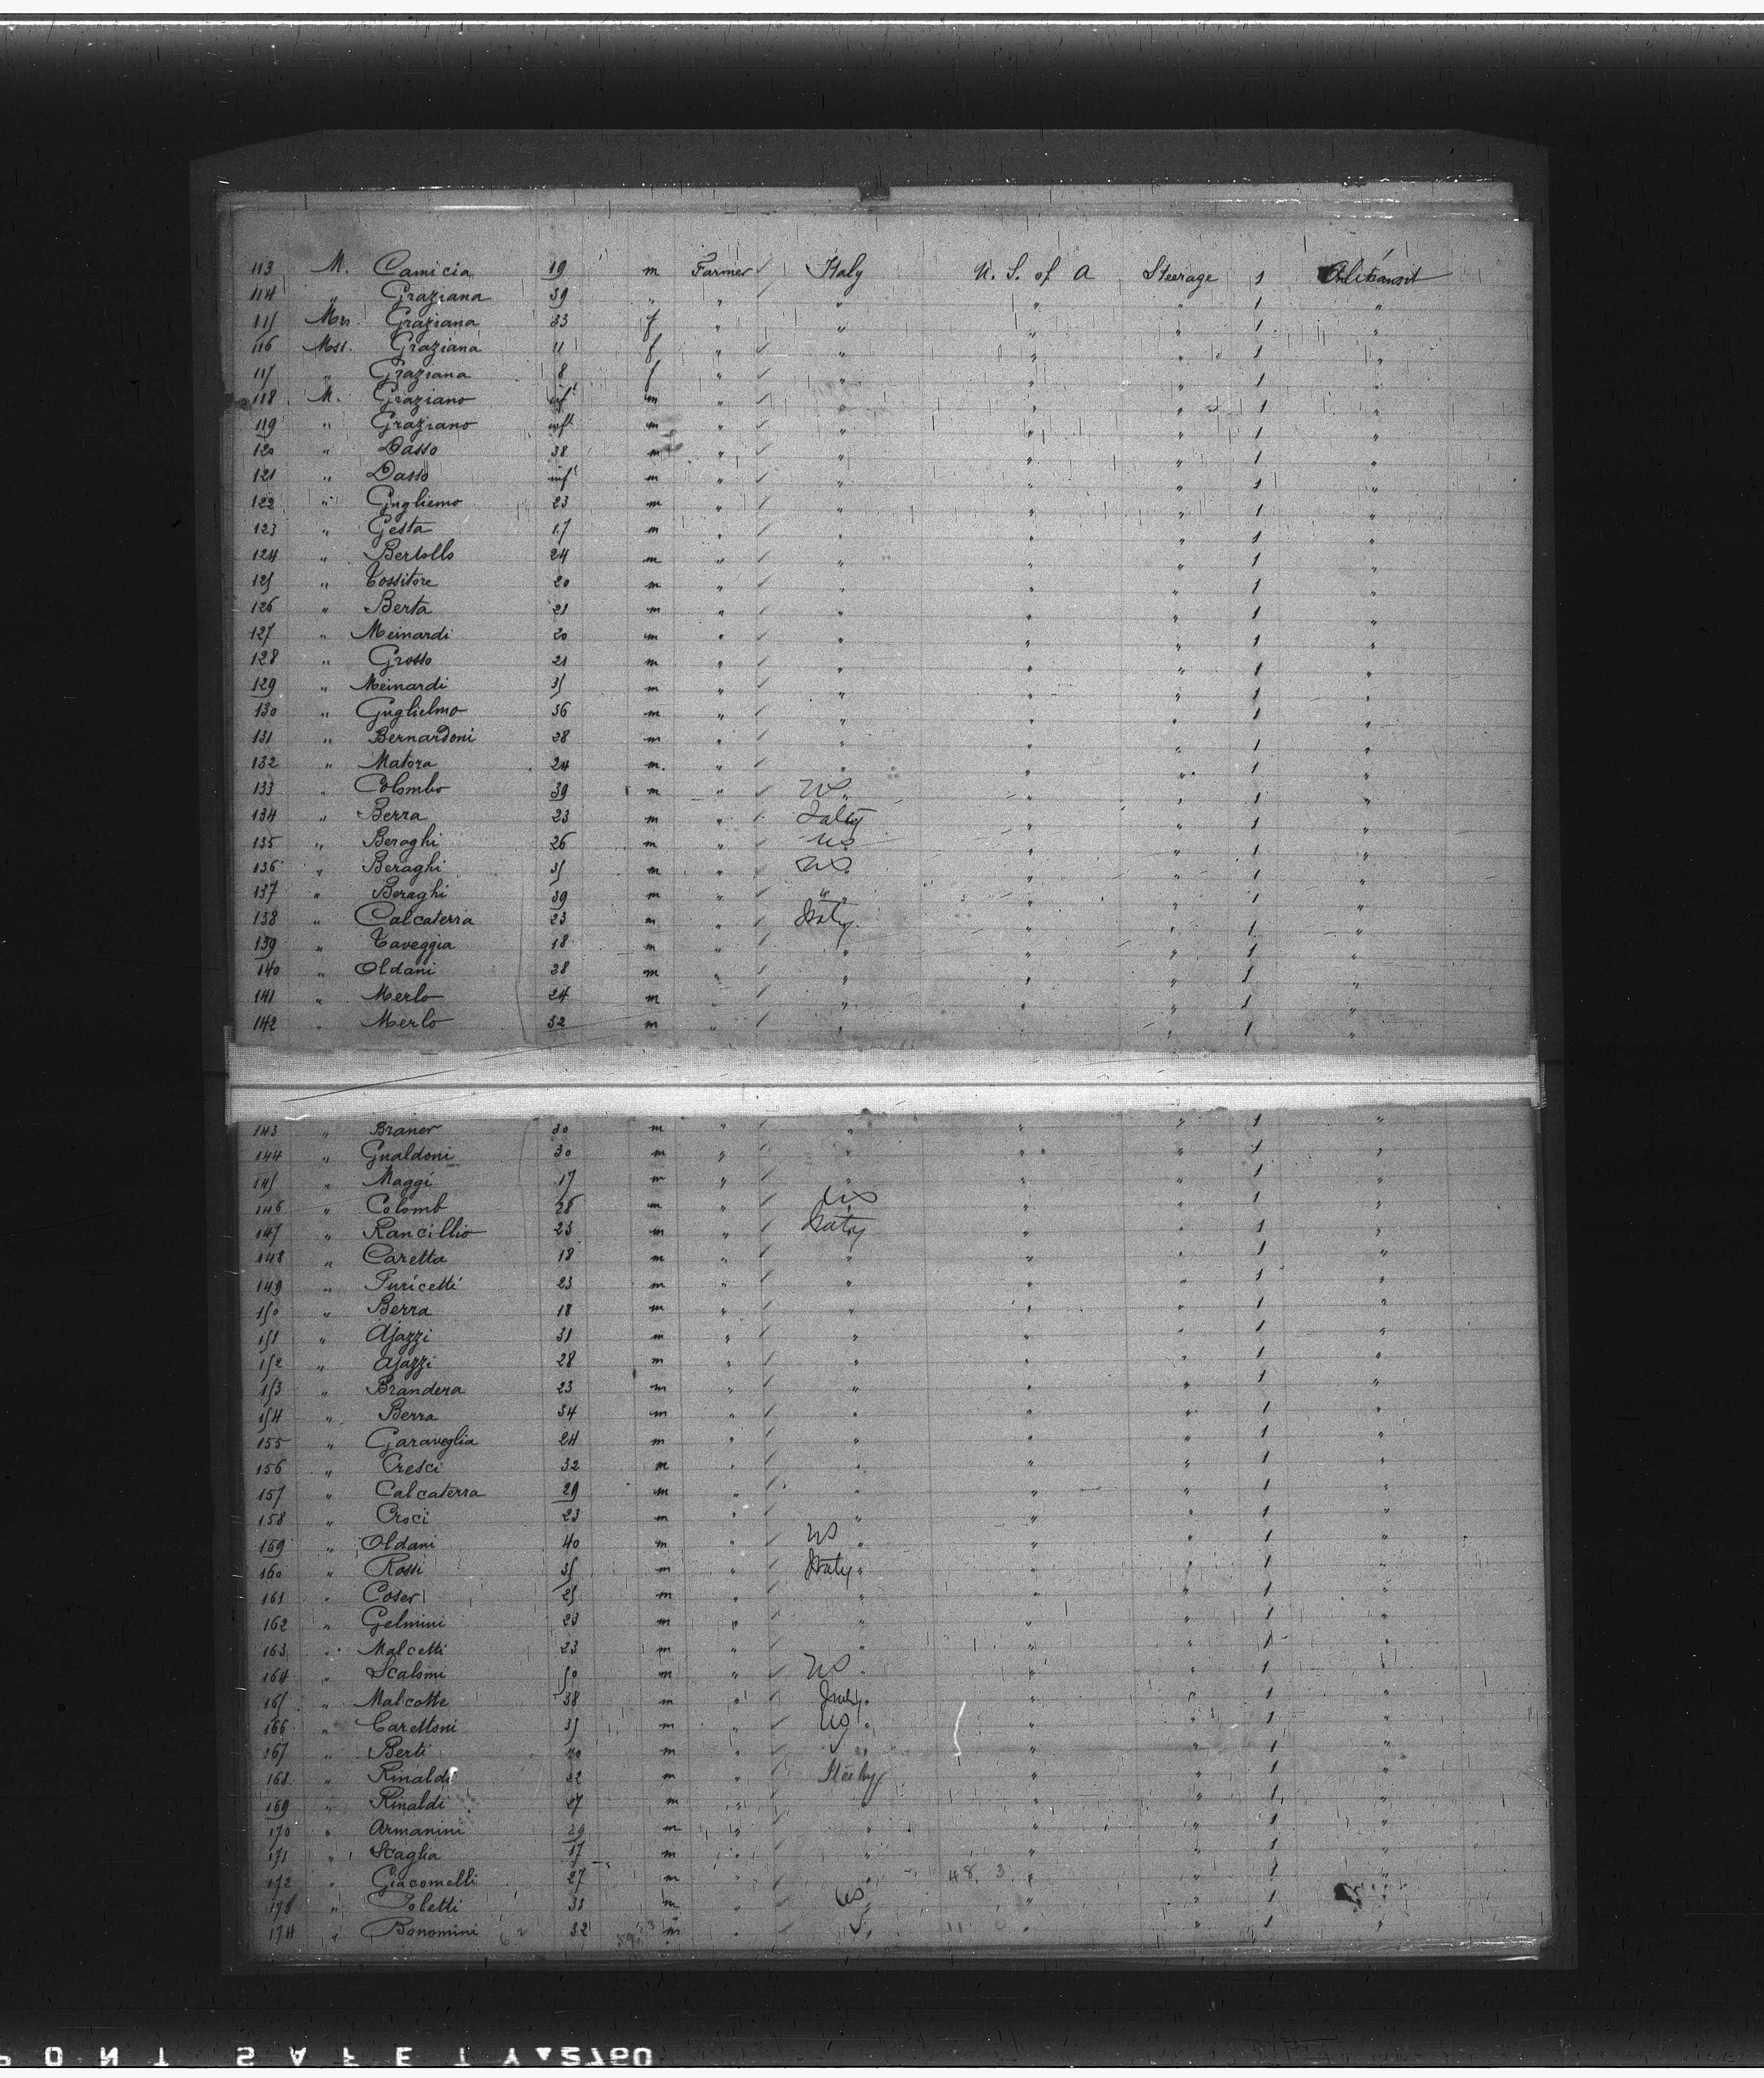 113 M. Camicia 19 m Farmer Italy U. S. of A Steerage 1
114 " Graziana 39 " " " " " 1 "
115 Mrs Graziana 33 f " " " " 1 "
116 Mss. Graziana 11 f " " " " 1 "
117 " Graziana 8 f " " " " 1 "
118 M. Graziano inft m " " " " 1 "
119 " Graziano inft m " " " " 1 "
120 " Dasso 38 m " " " " 1 "
121 " Dasso inft m " " " " 1 "
122 " Gugliemo 23 m " " " " 1 "
123 " Gesta 17 m " " " " 1 "
124 " Bertollo 24 m " " " " 1 "
125 " Tossitore 20 m " " " " 1 "
126 " Berta 21 m " " " " 1 "
127 " Meinardi 20 m " " " " 1 "
128 " Grosso 21 m " " " " 1 "
129 " Meinardi 35 m " " " " 1 "
130 " Guglielmo 36 m " " " " 1 "
131 " Bernardoni 28 m " " " " 1 "
132 " Matora 24 m. " " " " 1 "
133 " Colombo 39 m " US " " " 1 "
134 " Berra 23 m " Italy " " 1 "
135 " Beraghi 26 m " US " " 1 "
136 " Beraghi 35 m " US " " 1 "
137 " Beraghi 39 m " " " " 1 "
138 " Calcaterra 23 m " Italy " " 1 "
139 " Taveggia 18 m " " " " 1 "
140 " Oldani 28 m " " " " 1 "
141 " Merlo 24 m " " " " 1 "
142 " Merlo 32 m " " " " 1 "
143 " Braner 30 m " " " " 1 "
144 " Gualdoni 30 m " " " " 1 "
145 " Maggi 17 m " " " " 1 "
146 " Colomb 28 m " US " " 1 "
147 " Rancillio 23 m " Italy " " 1 "
148 " Caretta 18 m " " " " 1 "
149 " Puricetti 23 m " " " " 1 "
150 " Berra 18 m " " " " 1 "
151 " Ajazzi 31 m " " " " 1 "
152 " Ajazzi 28 m " " " " 1 "
153 " Brandera 23 m " " " " 1 "
154 " Berra 34 m " " " " 1 "
155 " Garaveglia 24 m " " " " 1 "
156 " Cresci 32 m " " " " 1 "
157 " Calcaterra 29 m " " " " 1 "
158 " Croci 23 m " " " " 1 "
159 " Oldani 40 m " US " " " 1 "
160 " Rossi 35 m " Italy " " " 1 "
161 " Coser 25 m " " " " 1 "
162 " Gelmini 23 m " " " " 1 "
163 " Malcetti 23 m " " " " 1 "
164 " Scalomi 50 m " US " " " 1 "
165 " Malcotte 38 m " Italy " " " 1 "
166 " Carettoni 35 m " US " " " 1 "
167 " Berti 40 m " " " " 1 "
168 " Rinaldi 32 m " Italy " " 1 "
169 " Rinaldi 27 m " " " " 1 "
170 " Armanini 29 m " " " " 1 "
171 " Scaglia 17 m " " " " 1 "
172 " Giacomelli 27 m " " 48 3 " " 1 "
173 " Poletti 33 m " US " " " 1 "
174 " Bonomini 32 m " " " " 1 "
PONT SAFETY▲2760